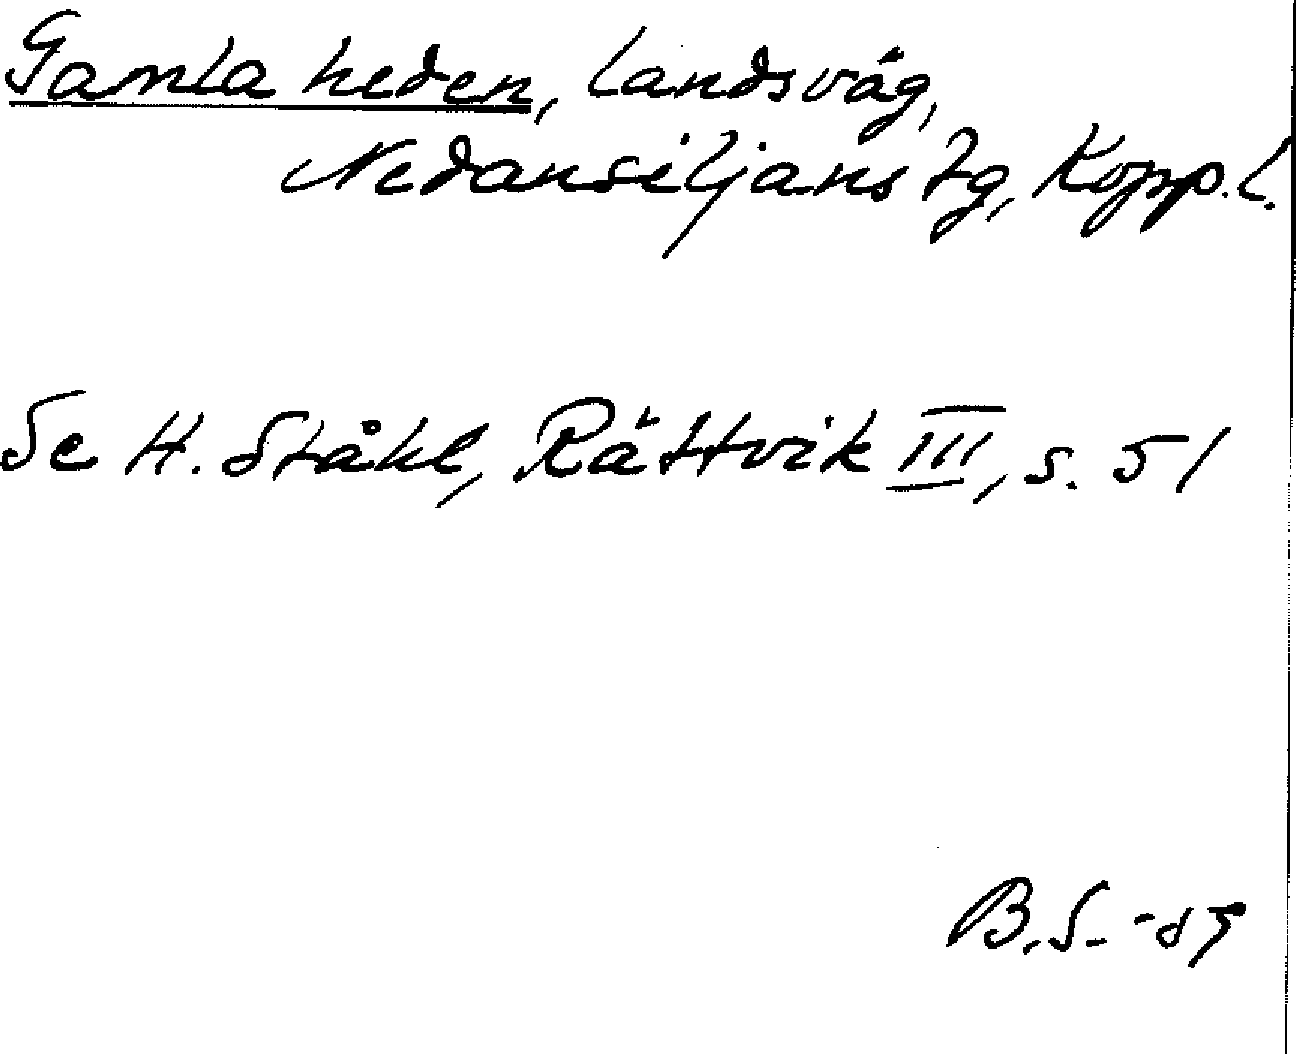 Gamla heden, landsväg,
Nedansiljans tg, Kopp. l.
Se H. Ståhl, Rättvik III, s. 51
B.S. -89